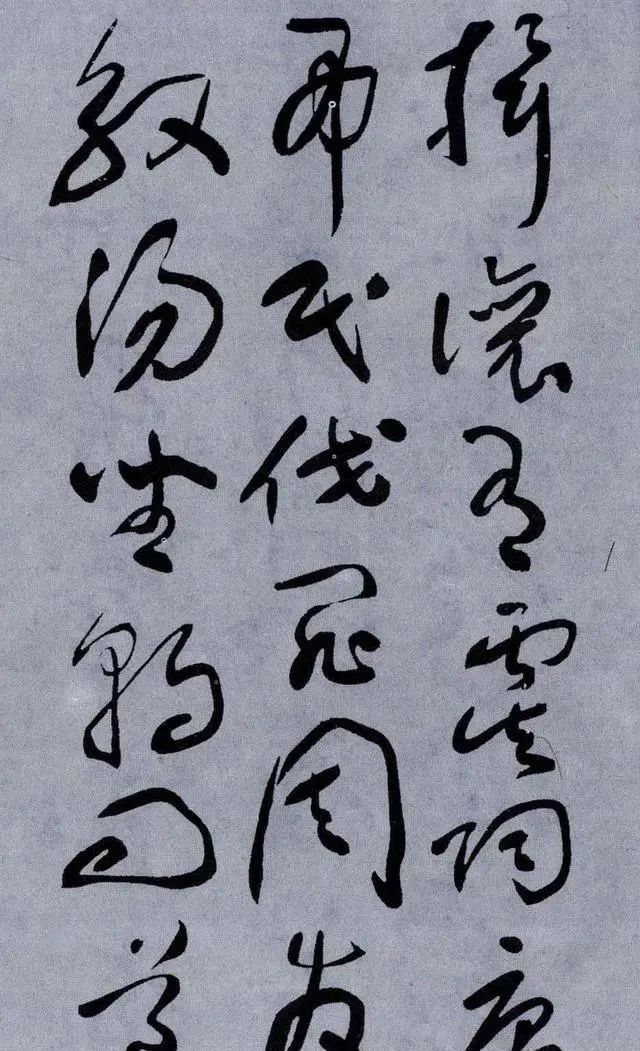 揖讓有虞陶唐
弔民伐罪周發
殷湯坐朝問道